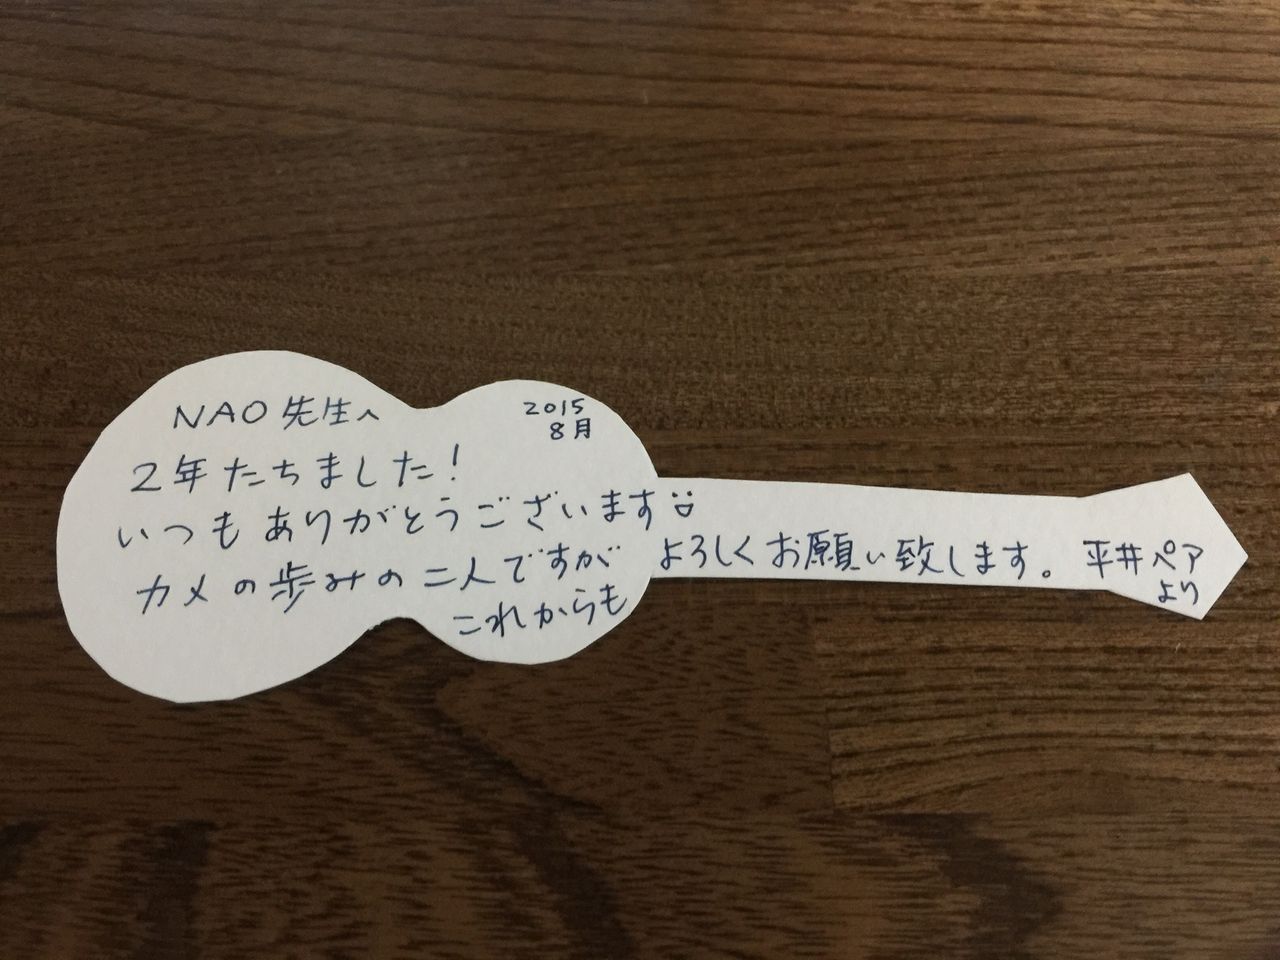 NAO 先生へ
2015
8月
2年たちました!
いつもありがとうございます
カメの歩みの二人ですが
これからも
よろしくお願い致します。
平井ペア
より